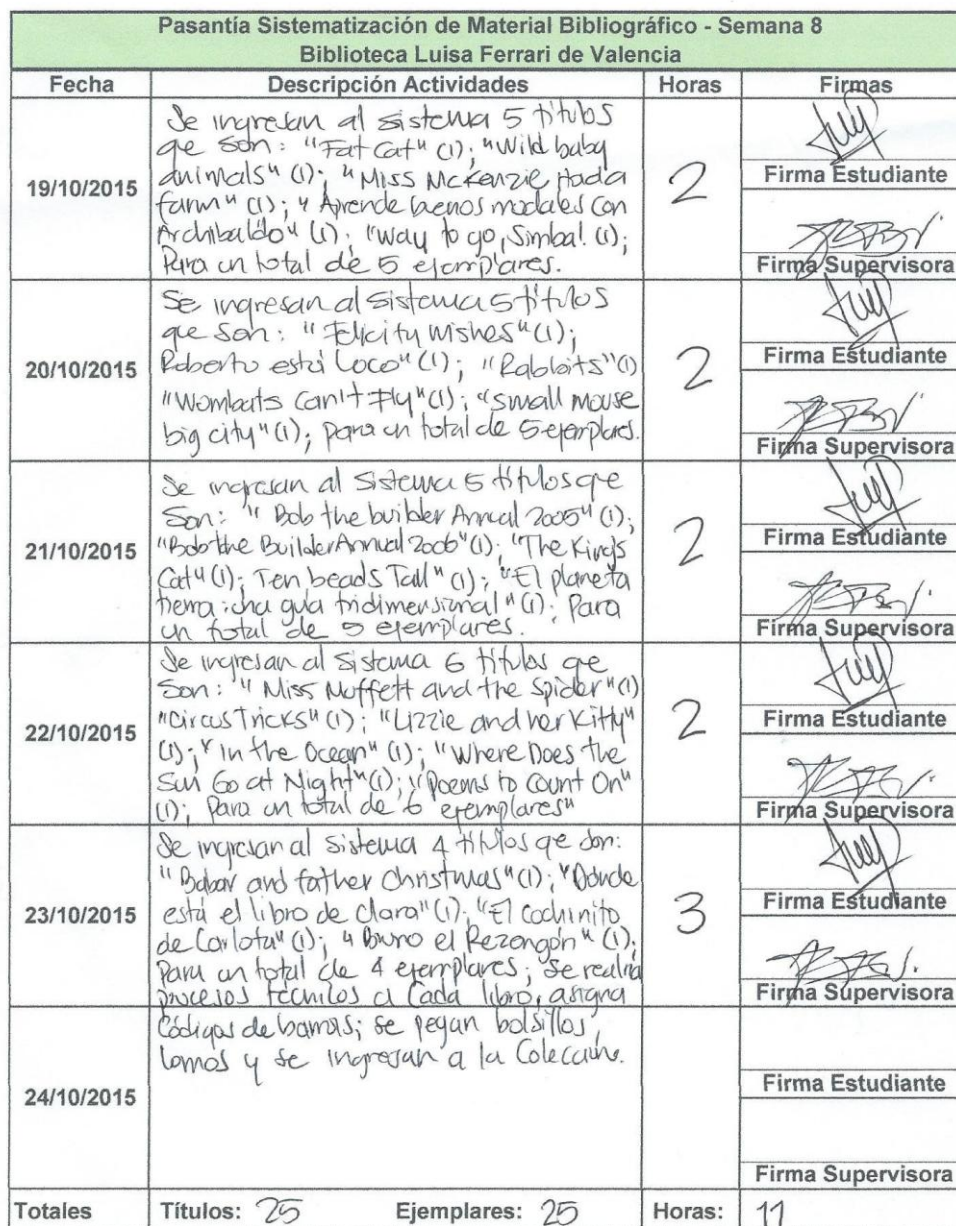 Pasantía Sistematización de Material Bibliográfico - Semana 8
Biblioteca Luisa Ferrari de Valencia
Fecha Descripción Actividades Horas Firmas
19/10/2015
Se ingresan al sistema 5 títulos
que son: "Fat Cat" (1); "Wild baby
animals" (1); "Miss McKenzie Had a
farm" (1); "Aprende buenos modales con
Archibaldo" (1); "Way to go, Simba! (1);
Para un total de 5 ejemplares.
2
Firma Estudiante
Firma Supervisora
20/10/2015
Se ingresan al sistema 5 títulos
que son: "Felicity wishes" (1);
Roberto está Loco" (1); "Rabbits" (1)
"Wombats can't Fly" (1); "Small mouse
big city" (1); para un total de 5 ejemplares.
2
Firma Estudiante
Firma Supervisora
21/10/2015
Se ingresan al sistema 5 títulos que
son: "Bob the builder Annual 2005" (1);
"Bob the Builder Annual 2006" (1); "The King's
Cat" (1); Ten beads Tall" (1); "El planeta
tierra: una guía tridimensional" (1); Para
un total de 5 ejemplares.
2
Firma Estudiante
Firma Supervisora
22/10/2015
Se ingresan al sistema 6 títulos que
son: "Miss Muffett and the Spider" (1)
"Circus Tricks" (1); "Lizzie and her Kitty"
(1); "In the Ocean" (1); "Where Does the
Sun Go at Night" (1); "Poems to Count On"
(1); Para un total de 6 ejemplares"
2
Firma Estudiante
Firma Supervisora
23/10/2015
Se ingresan al sistema 4 títulos que son:
"Babar and father Christmas" (1); "Dónde
está el libro de Clara" (1); "El Cochinito
de Carlota" (1); "Bruno el Rezongón" (1);
Para un total de 4 ejemplares; se realiza
procesos técnicos a cada libro, asigna
3
Firma Estudiante
Firma Supervisora
24/10/2015
Códigos de barras; se pegan bolsillos,
lomos y se ingresan a la Colección.
Firma Estudiante
Firma Supervisora
Totales Títulos: 25 Ejemplares: 25 Horas: 11